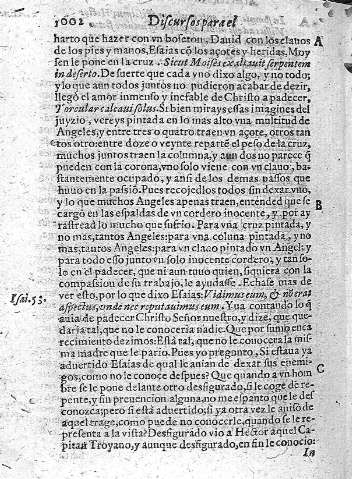 1002 Discursos para el
harto que hazer con vn boseton, Dauid con los clauos A
de los pies y manos, Esaias cõ los açotes y heridas. Moy
sen le pone en la cruz. Sicut Moises exaltauit serpentem
in deserto. De suerte que cada vno dixo algo, y no todo;
y lo que aun todos juntos no pudieron acabar de dezir,
llegò el amor inmenso y inefable de Christo a padecer,
Torcular calcaui solus. Si bien mirays essas imagines del
juyzio, vereys pintada en lo mas alto vna multitud de
Angeles, y entre tres o quatro traen vn açote, otros tan
tos otro: entre doze o veynte repartē el peso de la cruz,
muchos juntos traen la columna, y aun dos no parece q̃
pueden con la corona, vno solo viene con vn clauo, ba-
stantemente ocupado, y ansi de los demas passos que
huuo en la passiō. Pues recojedlos todos sin dexar vno,
y lo que muchos Angeles apenas traen, entended que se B
cargò en las espaldas de vn cordero inocente, y por ay
rastread lo mucho que sufrio. Para vna cruz pintada, y
no mas, tantos Angeles: para vna coluna pintada, y no
mas, tantos Angeles: para vn clauo pintado vn Angel; y
para todo esso junto vn solo inocente cordero, y tan so-
lo en el padecer, que ni aun tuuo quien, siquiera con la
compassion de su trabajo, le ayudasse. Echase mas de
Isai. 53. ver esto, por lo que dixo Esaias: Vidimus eum, & nō erat
aspectus, vnde nec reputauimus eum. Yua contando lo q̃
auia de padecer Christo Señor nuestro, y dize, que que-
daria tal, que no le conoceria nadie. Que por sumo enca
recimiento dezimos: Està tal, que no le conocerà la mis-
ma madre que le pario. Pues yo pregunto, Si estaua ya
aduertido Esaias de qual le auian de dexar sus enemi-
gos, como no le conoce despues? Que quando a vn hom C
bre se le pone delante otro desfigurado, si le coge de re-
pente, y sin preuencion alguna, no me espanto que le des
conozca; pero si està aduertido, si ya otra vez le auiso de
aquel trage, como puede no conocerle, quando se le re-
presenta a la vista? Desfigurado vio a Hector aquel Ca-
pitan Troyano, y aunque desfigurado, en fin le conocio:
In